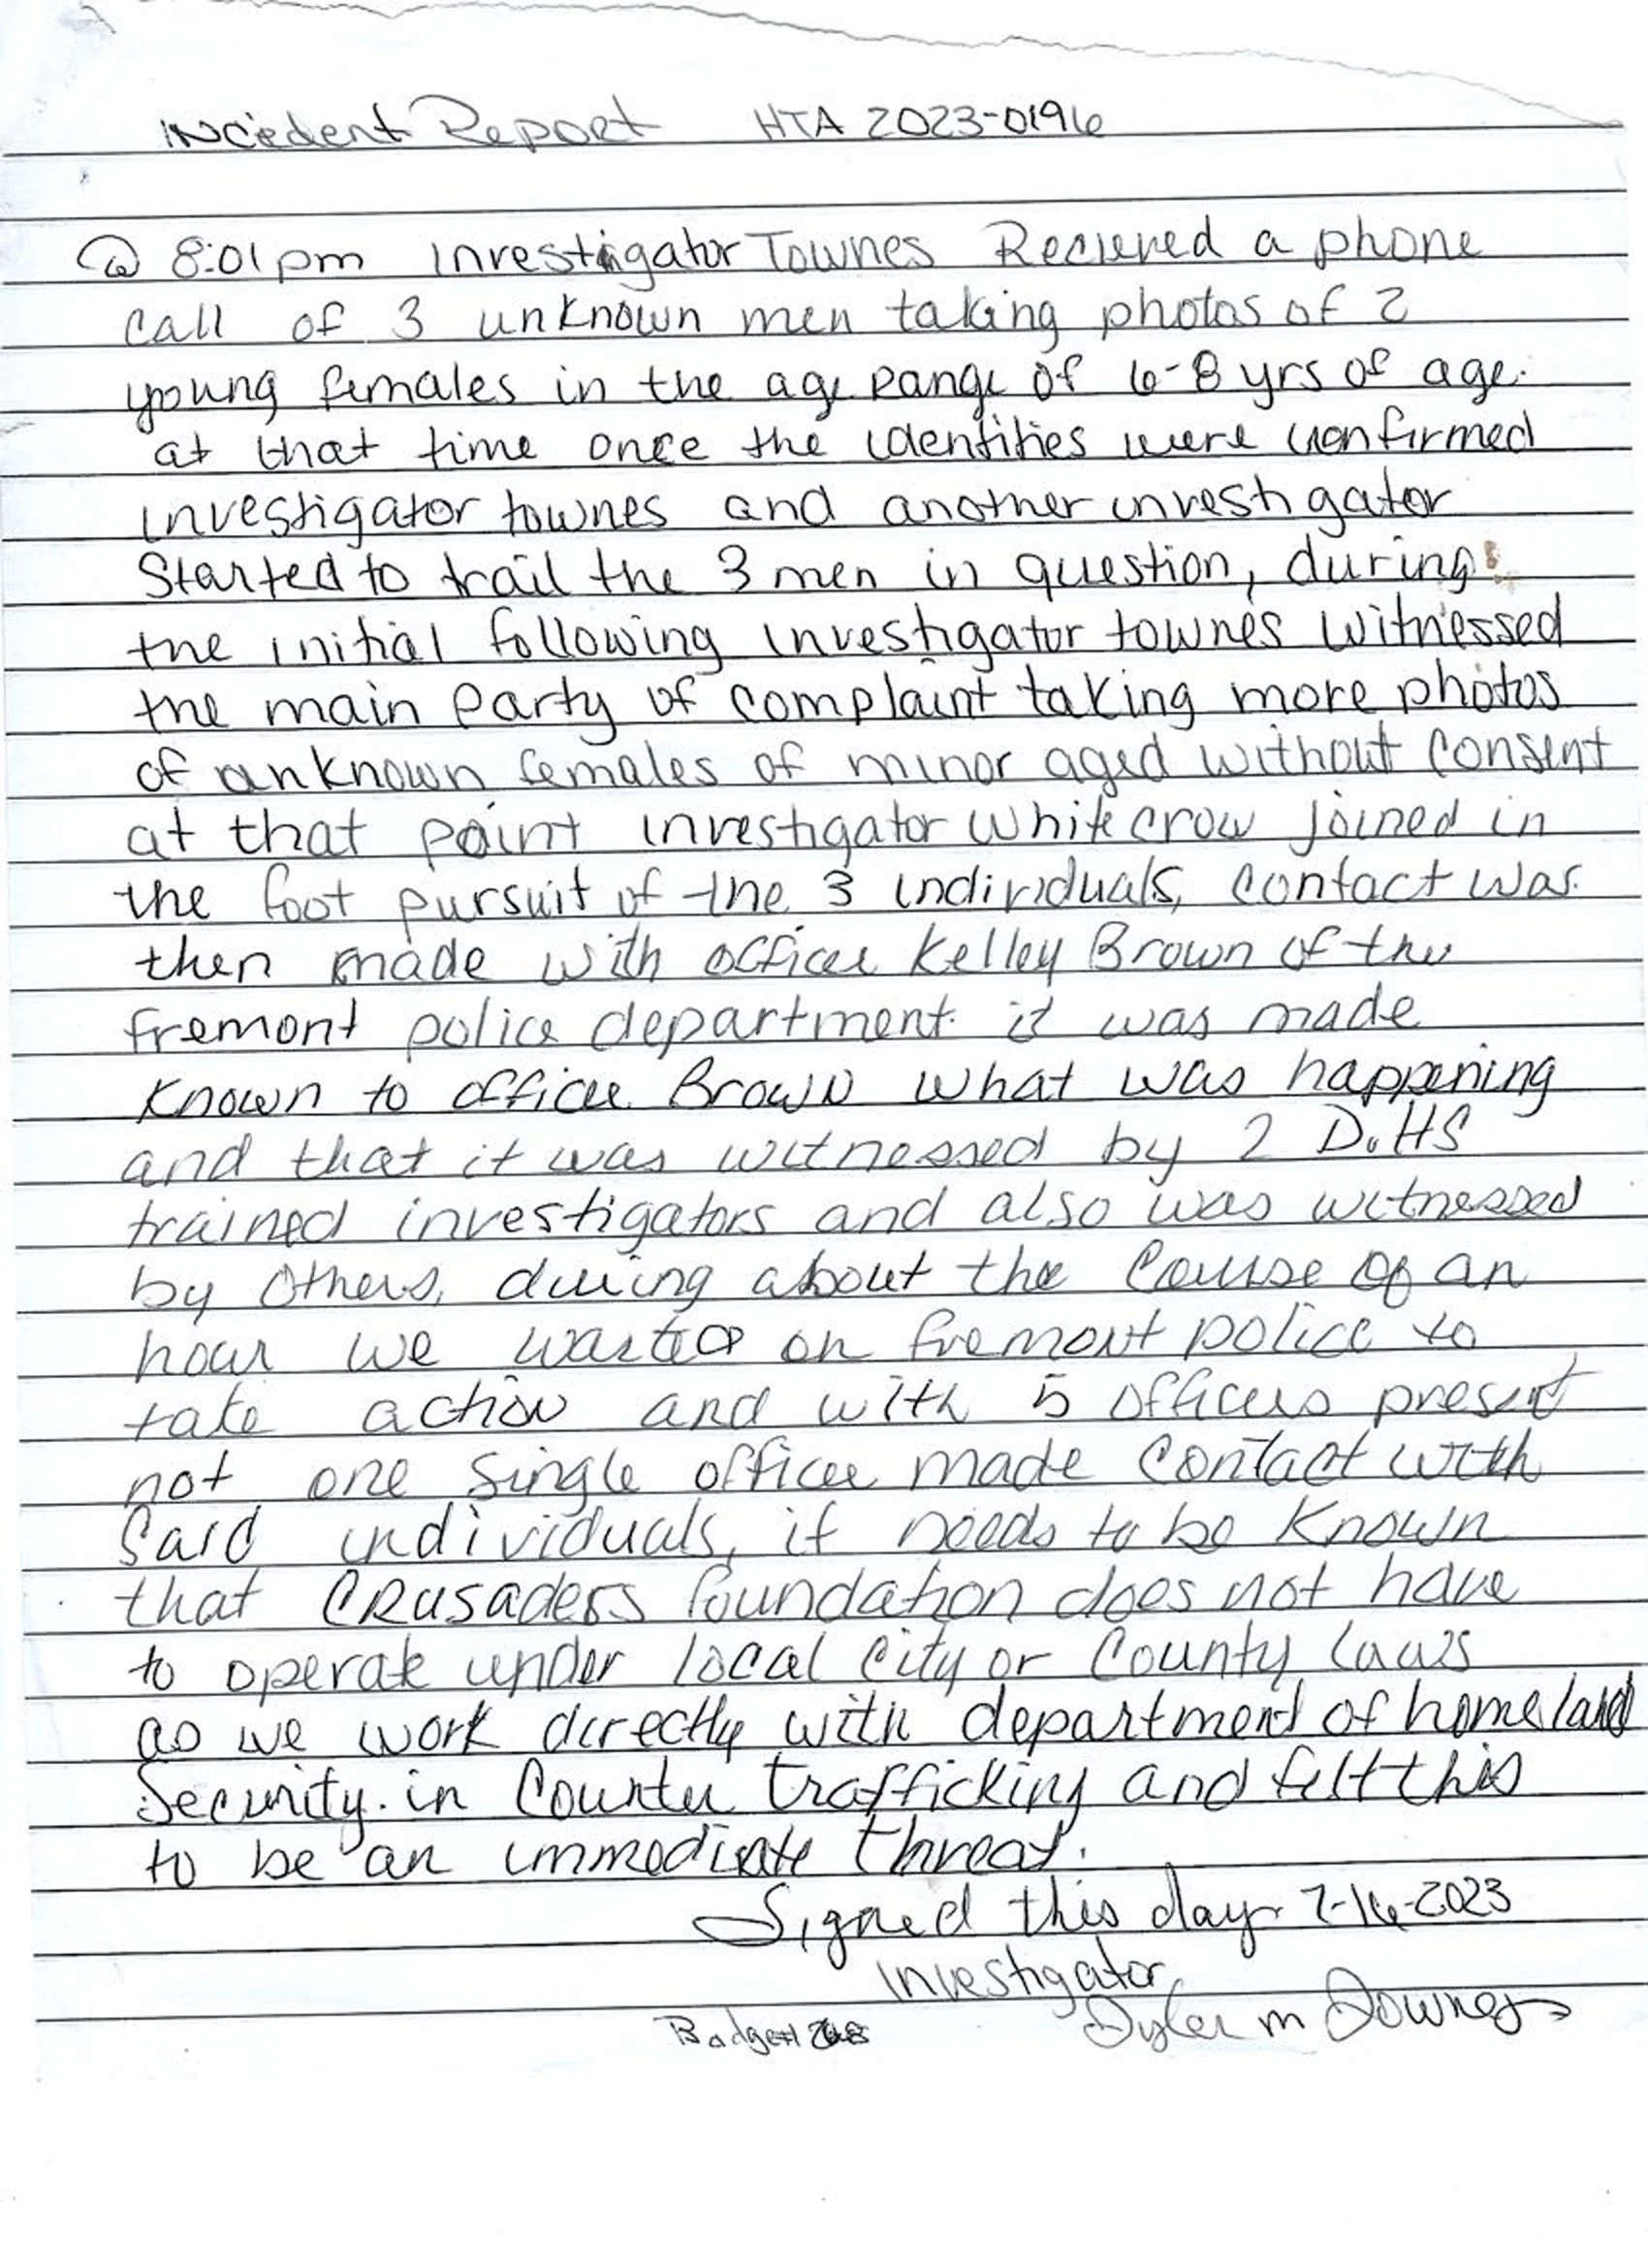 INCedent Report HTA 2023-0196
@ 8:01pm Investigator Townes Recieved a phone
call of 3 unknown men taking photos of 2
young females in the age range of 6-8 yrs of age.
at that time once the identities were confirmed
investigator townes and another investigator
Started to trail the 3 men in question, during
the initial following investigator townes witnessed
the main party of complaint taking more photos
of unknown females of minor aged without consent
at that point investigator Whitecrow joined in
the foot pursuit of the 3 individuals, contact was
then made with officer Kelley Brown of the
fremont police department. it was made
known to officer Brown what was happening
and that it was witnessed by 2 D.HS
trained investigators and also was witnessed
by others, during about the course of an
hour we waited on fremont police to
take action and with 5 officers present
not one single officer made contact with
said individuals, it needs to be known
that CRusaders foundation does not have
to operate under local city or county laws
as we work directly with department of homeland
Security. in counter trafficking and felt this
to be an immediate threat.
Signed this day 7-16-2023
Investigator
Badge#